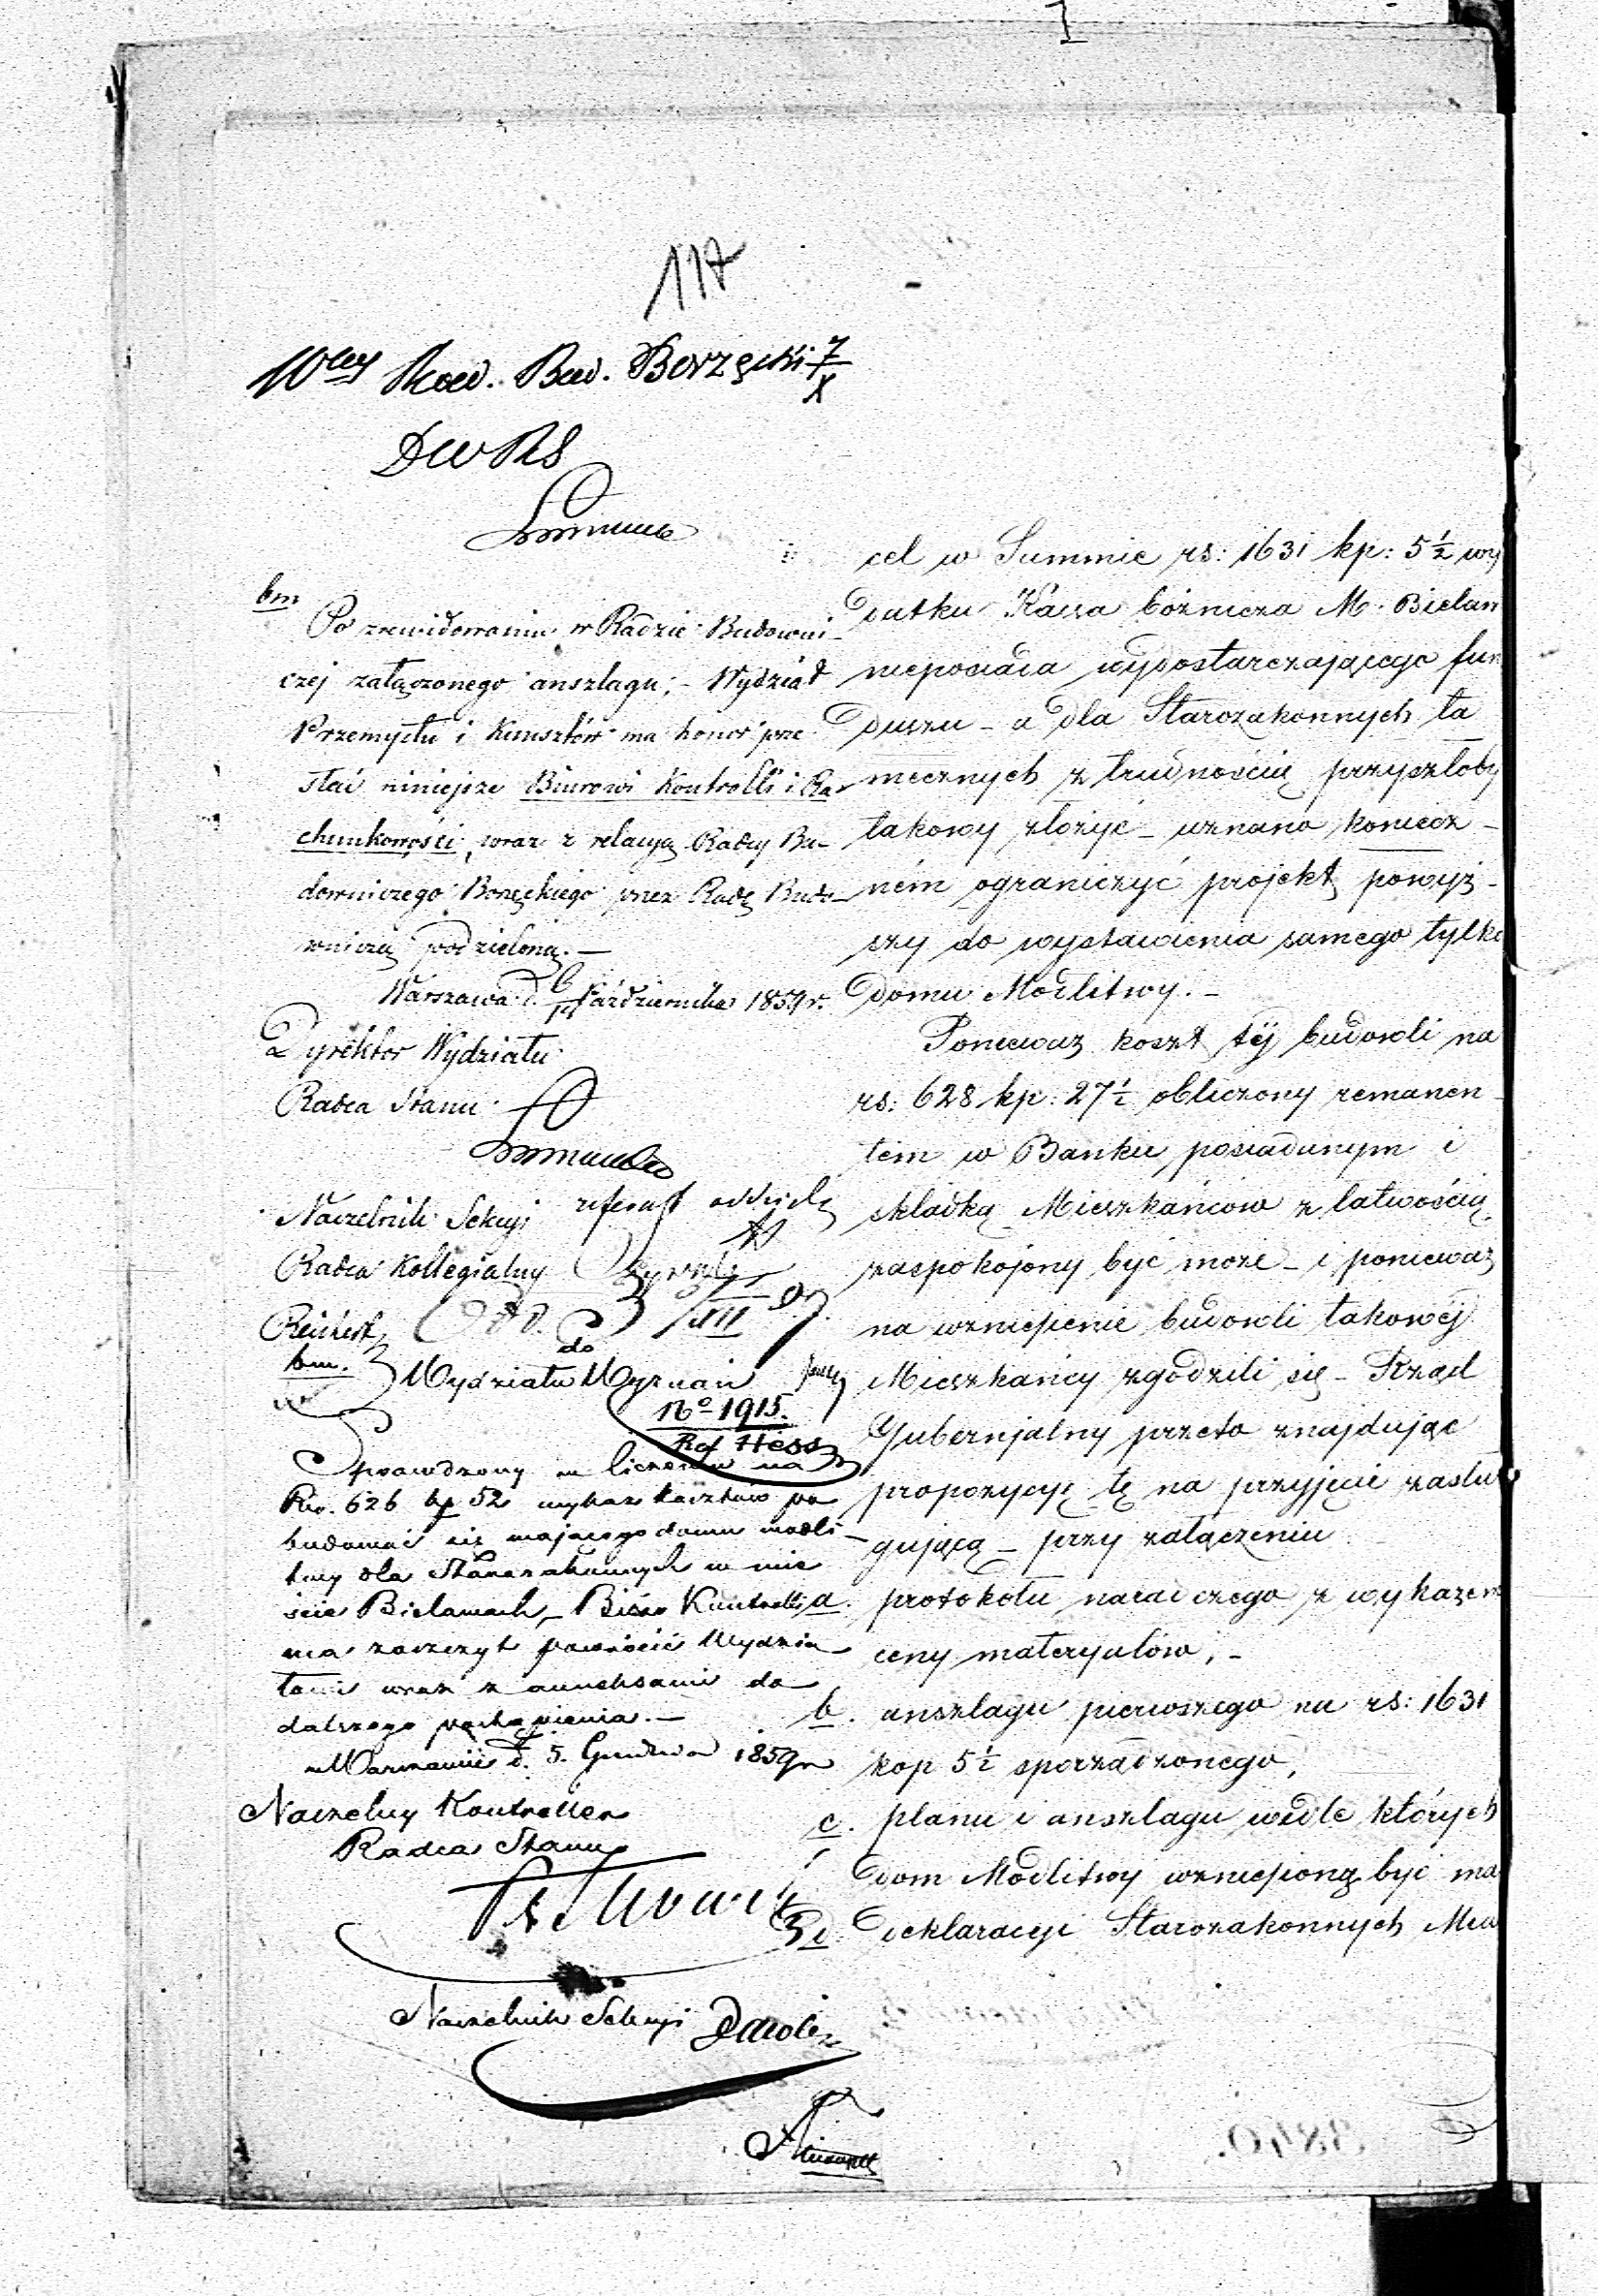 117
Rad. Bud. Borzęcki 7/X
bm
Po zrewidowaniu w Radzie Budowni-
czej załączonego anszlagu; - Wydział
Przemysłu i Kunsztów ma honor prze
słać niniejsze Biurowi Kontrolli i Ra-
chunkowości, wraz z relacyą Radcy Bu-
downiczego Borzęckiego przez Radę Budo-
wniczą podzieloną. —
Warszawa d. Października 1859 r.
Dyrektor Wydziału
Radca Stanu
Naczelnik Sekcyi
Radca Kollegialny
Reichert
bm.
do
Wydziału Wyznań
No 1915.
Rf Hess
Sprawdzony w liczbach na
Rs. 626 kp 52 wykaz kosztów po
budować się mającego domu modli-
twy dla Starozakonnych w mie
ście Bielanach, - Biuro Kontrolli
ma zaszczyt powrócić Wydzia
łowi wraz z annexami do
dalszego postąpienia. —
w Warszawie d. 5. Grudnia 1859 r
Naczelny Kontroller
Radca Stanu
Naczelnik Sekcyi
cel w Summie rs: 1631 kp: 5½ wy
datku Kassa bóżnicza M. Bielan
nieposiada wydostarczającego fun
duszu - a dla Starozakonnych ta
mecznych z trudnością przyszłoby
takowy złożyć - uznano koniecz-
ném ograniczyć projekt powyż-
szy do wystawienia samego tylko
domu Modlitwy. -
Ponieważ koszt téj budowli na
rs: 628 kp: 27½ obliczony remanen-
tem w Banku posiadanym i
składką Mieszkańców z łatwością
zaspokojony być może - i ponieważ
na wzniesienie budowli takowéj
Mieszkańcy zgodzili się - Rząd
Gubernjalny przeto znajdując
propozycyę tę na przyjęcie zasłu
gującą - przy załączeniu
a. protokołu naradczego z wykazem
ceny materyałów, -
b. anszlagu pierwszego na rs: 1631
kop 5½ sporządzonego,
c. planu i anszlagu wedle których
dom Modlitwy wzniesioną być ma
d. deklaracyi Starozakonnych